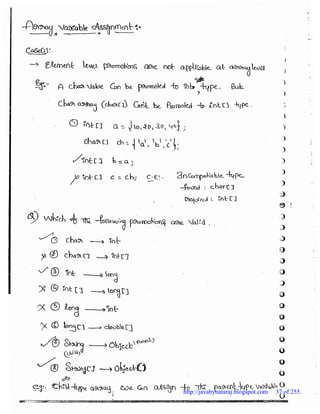 Array variable Assignment :-
Case(i):-
→ Element level promotions are not applicable at array level
Eg:- A char value can be promoted to int type. But
char array (char[]) can't be promoted to int[] type.
① int[] a = {10, 20, 30, 40};
char[] ch = {'a', 'b', 'c'};
✓ int[] b = a;
✗ int[] c = ch; C.E:- Incompatible type
found : char[]
required : int[]
Q) Which of the following promotions are valid.
✓ ① char → int
✗ ② char[] → int[]
✓ ③ int → long
✗ ④ int[] → long[]
✗ ⑤ long → int
✗ ⑥ long[] → double[]
✓ ⑦ String → Object (parent)
(child)
✓ ⑧ String[] → Object[]
eg: child-type array, we can assign to the parent-type variable
http://javabynataraj.blogspot.com 37 of 255.